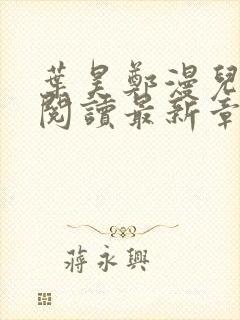 葉昊鄭漫兒
閱讀最新章
蔣永興